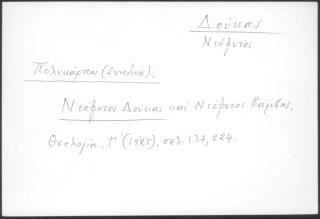 Δούκας
Νεόφυτος
Πολυκάρπου (Συνοδινοῦ):
Νεόφυτος Δούκας καὶ Νεόφυτος Βάμβας,
Θεολογία, Γ΄ (1925), σελ. 137, 224.